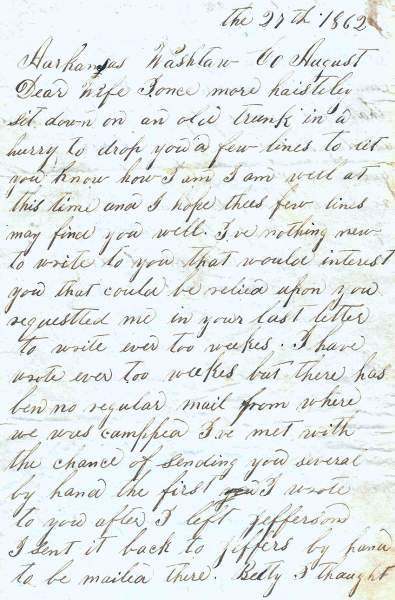 the 27th 1862
Arkansas Washtaw Co August
Dear Wife I once more haisteley
sit down on an old trunk in a
hurry to drop you a few lines to let
you know how I am I am well at
this time and I hope thees few lines
may find you well. I've nothing new
to write to you that would interest
you that could be relied upon you
requestled me in your last letter
to write ever too weekes. I have
wrote ever too weekes but there has
ben no regular mail from where
we was camppea I've met with
the chance of sending you several
by hand the first I wrote
to you after I left Jefferson
I sent it back to Jeffers by hand
to be mailed there. Betty I thought